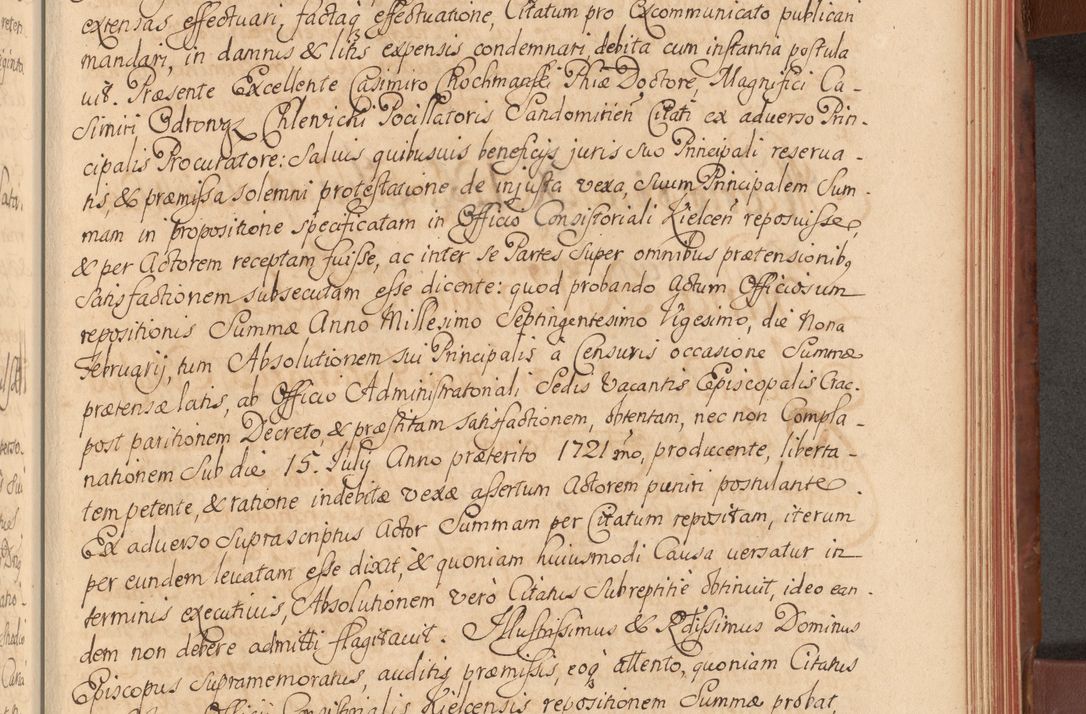 extensas effectuari, factaq₃ effectuatione, Citatum pro Excommunicato publicari
mandari, in damnis & litis expensis condemnari debita cum instantia postula
uit. Præsente Excellente Casimiro Chochmański Phiæ Doctore, Magnifici Ca-
simiri Odronvz Chlewicki Pocillatoris Sandomirien̄ Citati ex adverso Prin-
cipalis Procuratore: Salvis quibusuis beneficijs juris suo Principali reserua-
tis, & præmissa solemni protestatione de injusta vexa, suum Principalem Sum-
mam in propositione specificatam in Officio Consistoriali Kielcen̄ reposuisse,
& per Actorem receptam fuisse, ac inter se Partes super omnibus prætensionib9
Satisfactionem subsecutam esse dicente: quod probando Actum Officiosum
repositionis Summæ Anno Millesimo Septingentesimo Vigesimo, die Nona
Februarij, tum Absolutionem sui Principalis à Censuris occasione Summæ
prætensæ latis, ab Officio Administratoriali Sedis Vacantis Episcopalis Crac.
post paritionem Decreto, & præstitam satisfactionem, obtentam, nec non Compla-
nationem Sub die 15. July Anno præterito 1721mo, producente, liberta-
tem petente, & ratione indebitæ vexæ assertum Actorem puniri postulante.
Ex adverso Suprascriptus Actor Summam per Citatum repositam, iterum
per eundem levatam esse dixit, & quoniam huiusmodi Causa versatur in
terminis executivis, Absolutionem verò Citatus Subreptitiè obtinuit, ideo ean-
dem non debere admitti flagitavit. Illustrissimus & Rdissimus Dominus
Episcopus supramemoratus, auditis præmissis, eoq₃ attento, quoniam Citatus
Officij Consistorialis Kielcensis repositionem Summæ probat,